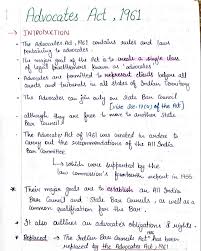 Advocates Act, 1961
→ INTRODUCTION
• The Advocates Act, 1961 contains rules and laws
pertaining to advocates.
• Its major goal of the Act is to create a single class
of legal practitioners known as 'advocates'
• Advocates are permitted to represent clients before all
courts and tribunals in all states of Indian territory
• The Advocates can join only one State Bar Council
of the Act)
• although, they are free to move to another State
Bar Council
• The Advocates Act of 1961 was created in order to
carry out the recommendations of the All India
Bar Committee
↳ which were supported by the
law commission's fourteenth report in 1955
* Their major goals are to establish an All India
Bar Council and State Bar Councils, as well as a
common qualification for the Bar.
* It also outlines an advocates obligations & rights
* Replaced → The Indian Bar Councils Act has been
replaced by the Advocates Act, 1961